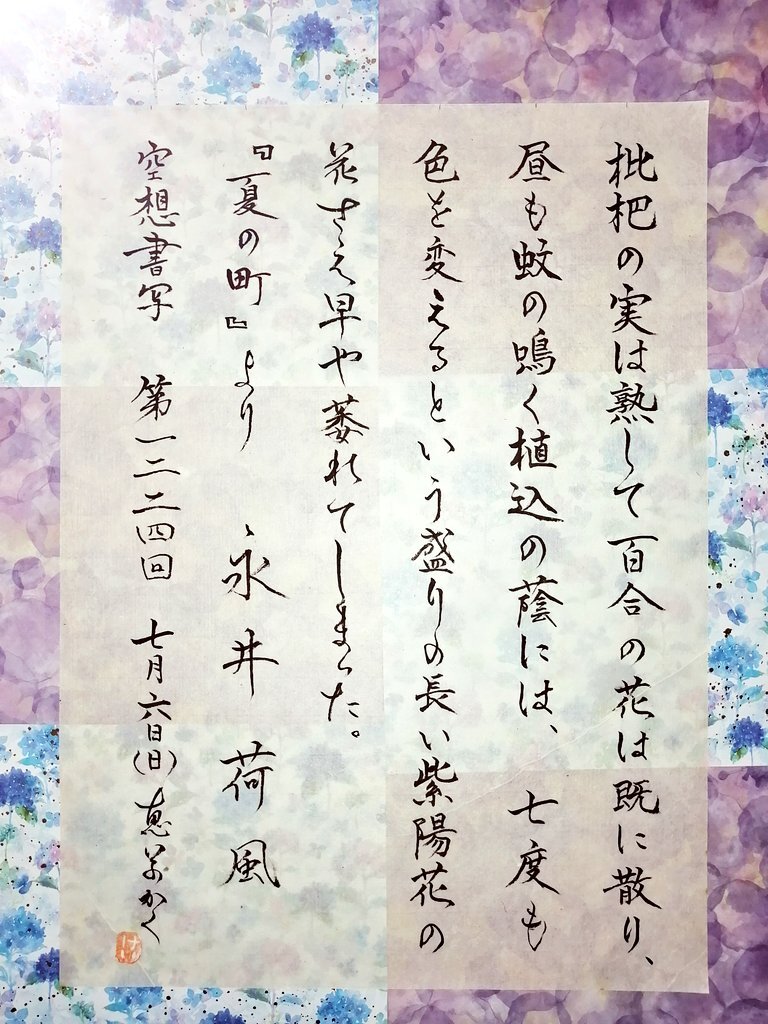 枇杷の実は熟して百合の花は既に散り、
昼も蚊の鳴く植込の蔭には、七度も
色を変えるという盛りの長い紫陽花の
花さえ早や萎れてしまった。
『夏の町』より 永井荷風
空想書写 第一二二四回 七月六日(日) 恵かく